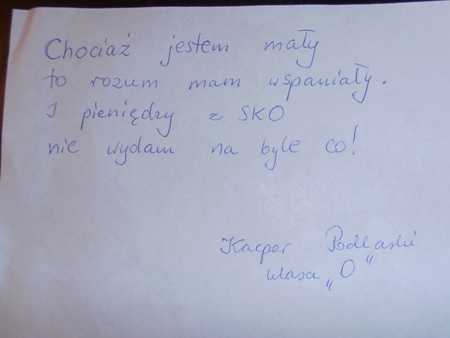 Chociaż jestem mały
to rozum mam wspaniały.
I pieniędzy z SKO
nie wydam na byle co!
Kacper Podlaski
klasa „0"